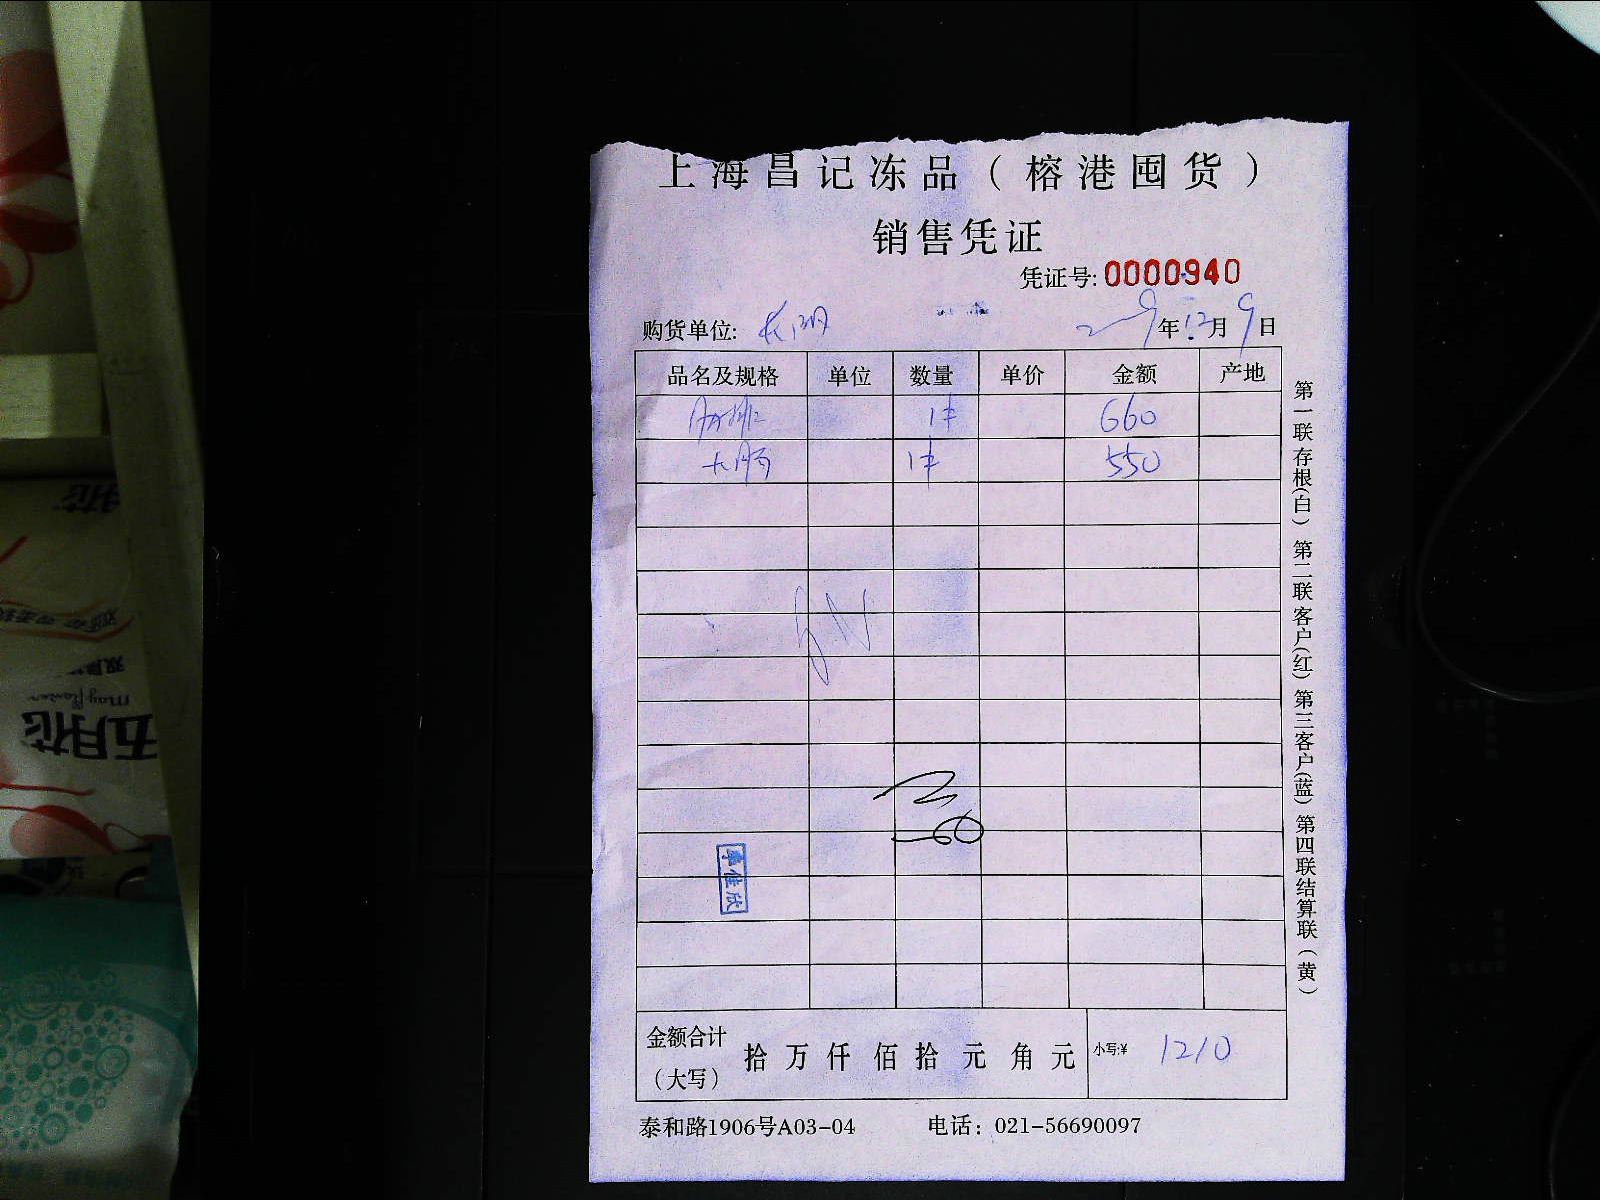 上海昌记冻品（榕港囤货）
销售凭证
凭证号:0000940
购货单位: 年12月9日
品名及规格 单位 数量 单价 金额 产地
1件 660
大肠 1件 550
韦佳欣
金额合计（大写） 拾 万 仟 佰 拾 元 角 元 小写:¥ 1210
泰和路1906号A03-04 电话：021-56690097
第一联存根(白) 第二联客户(红) 第三客户(蓝) 第四联结算联（黄）
五月花
mayflower